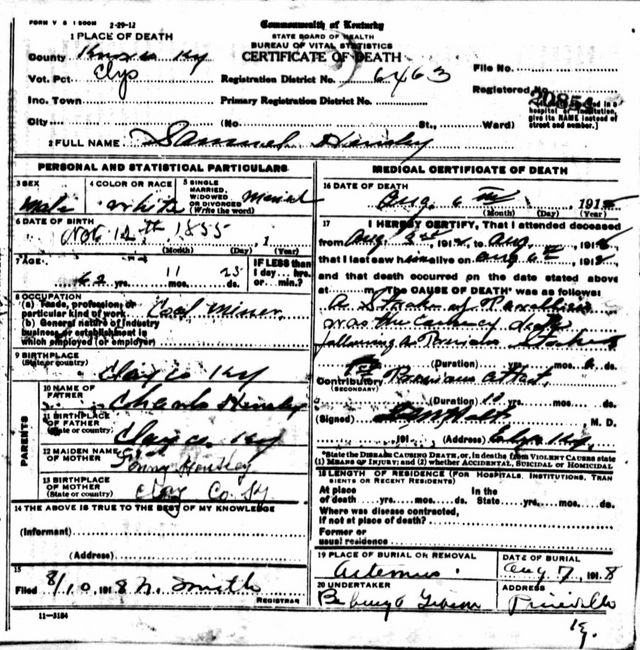 FORM V S 1 500M 2-29-12
Commonwealth of Kentucky
STATE BOARD OF HEALTH
BUREAU OF VITAL STATISTICS
CERTIFICATE OF DEATH
1 PLACE OF DEATH
County Knox Ky
Vot. Pct Clys
Registration District No. 6463
File No.
Inc. Town
Primary Registration District No.
Registered No. 20854
City
(No. St., Ward)
hospital or institution, give its NAME instead of street and number.]
2 FULL NAME Samuel Hensley
PERSONAL AND STATISTICAL PARTICULARS
3 SEX Male
4 COLOR OR RACE White
5 SINGLE MARRIED, WIDOWED OR DIVORCED (Write the word) Married
6 DATE OF BIRTH
12th 1855
(Month) (Day) (Year)
7 AGE
62 yrs. 11 mos. 25 ds.
IF LESS than 1 day... hrs. or... min.?
8 OCCUPATION
(a) Trade, profession, or particular kind of work Coal Miner
(b) General nature of industry business or establishment in which employed (or employer)
9 BIRTHPLACE (State or country) Clay co Ky
PARENTS
10 NAME OF FATHER Charls Hensley
11 BIRTHPLACE OF FATHER (State or country) Clay co. Ky
12 MAIDEN NAME OF MOTHER
13 BIRTHPLACE OF MOTHER (State or country) Clay Co. Ky
14 THE ABOVE IS TRUE TO THE BEST OF MY KNOWLEDGE
(Informant)
(Address)
15
Filed 8/10 1918 N. Smith
REGISTRAR
11-3184
MEDICAL CERTIFICATE OF DEATH
16 DATE OF DEATH
Aug 6th 191
(Month) (Day) (Year)
17 I HEREBY CERTIFY, That I attended deceased
from Aug 191 to Aug 191
that I last saw him alive on Aug 6th 191
and that death occurred on the date stated above
at M. The CAUSE OF DEATH* was as follows:
A Stroke of
was the
following a Previous Stroke
(Duration) yrs. mos. ds.
Contributory (SECONDARY) Previous attack
(Duration) yrs. mos. ds.
(Signed) M. D.
191 (Address) Ky.
*State the DISEASE CAUSING DEATH, or, in deaths from VIOLENT CAUSES state (1) MEANS OF INJURY; and (2) whether ACCIDENTAL, SUICIDAL OR HOMICIDAL
18 LENGTH OF RESIDENCE (FOR HOSPITALS, INSTITUTIONS, TRANSIENTS OR RECENT RESIDENTS)
At place of death yrs. mos. ds. In the State yrs. mos. ds.
Where was disease contracted, if not at place of death?
Former or usual residence
19 PLACE OF BURIAL OR REMOVAL Artemus
DATE OF BURIAL Aug 7 1918
20 UNDERTAKER
ADDRESS Pineville
Ky.